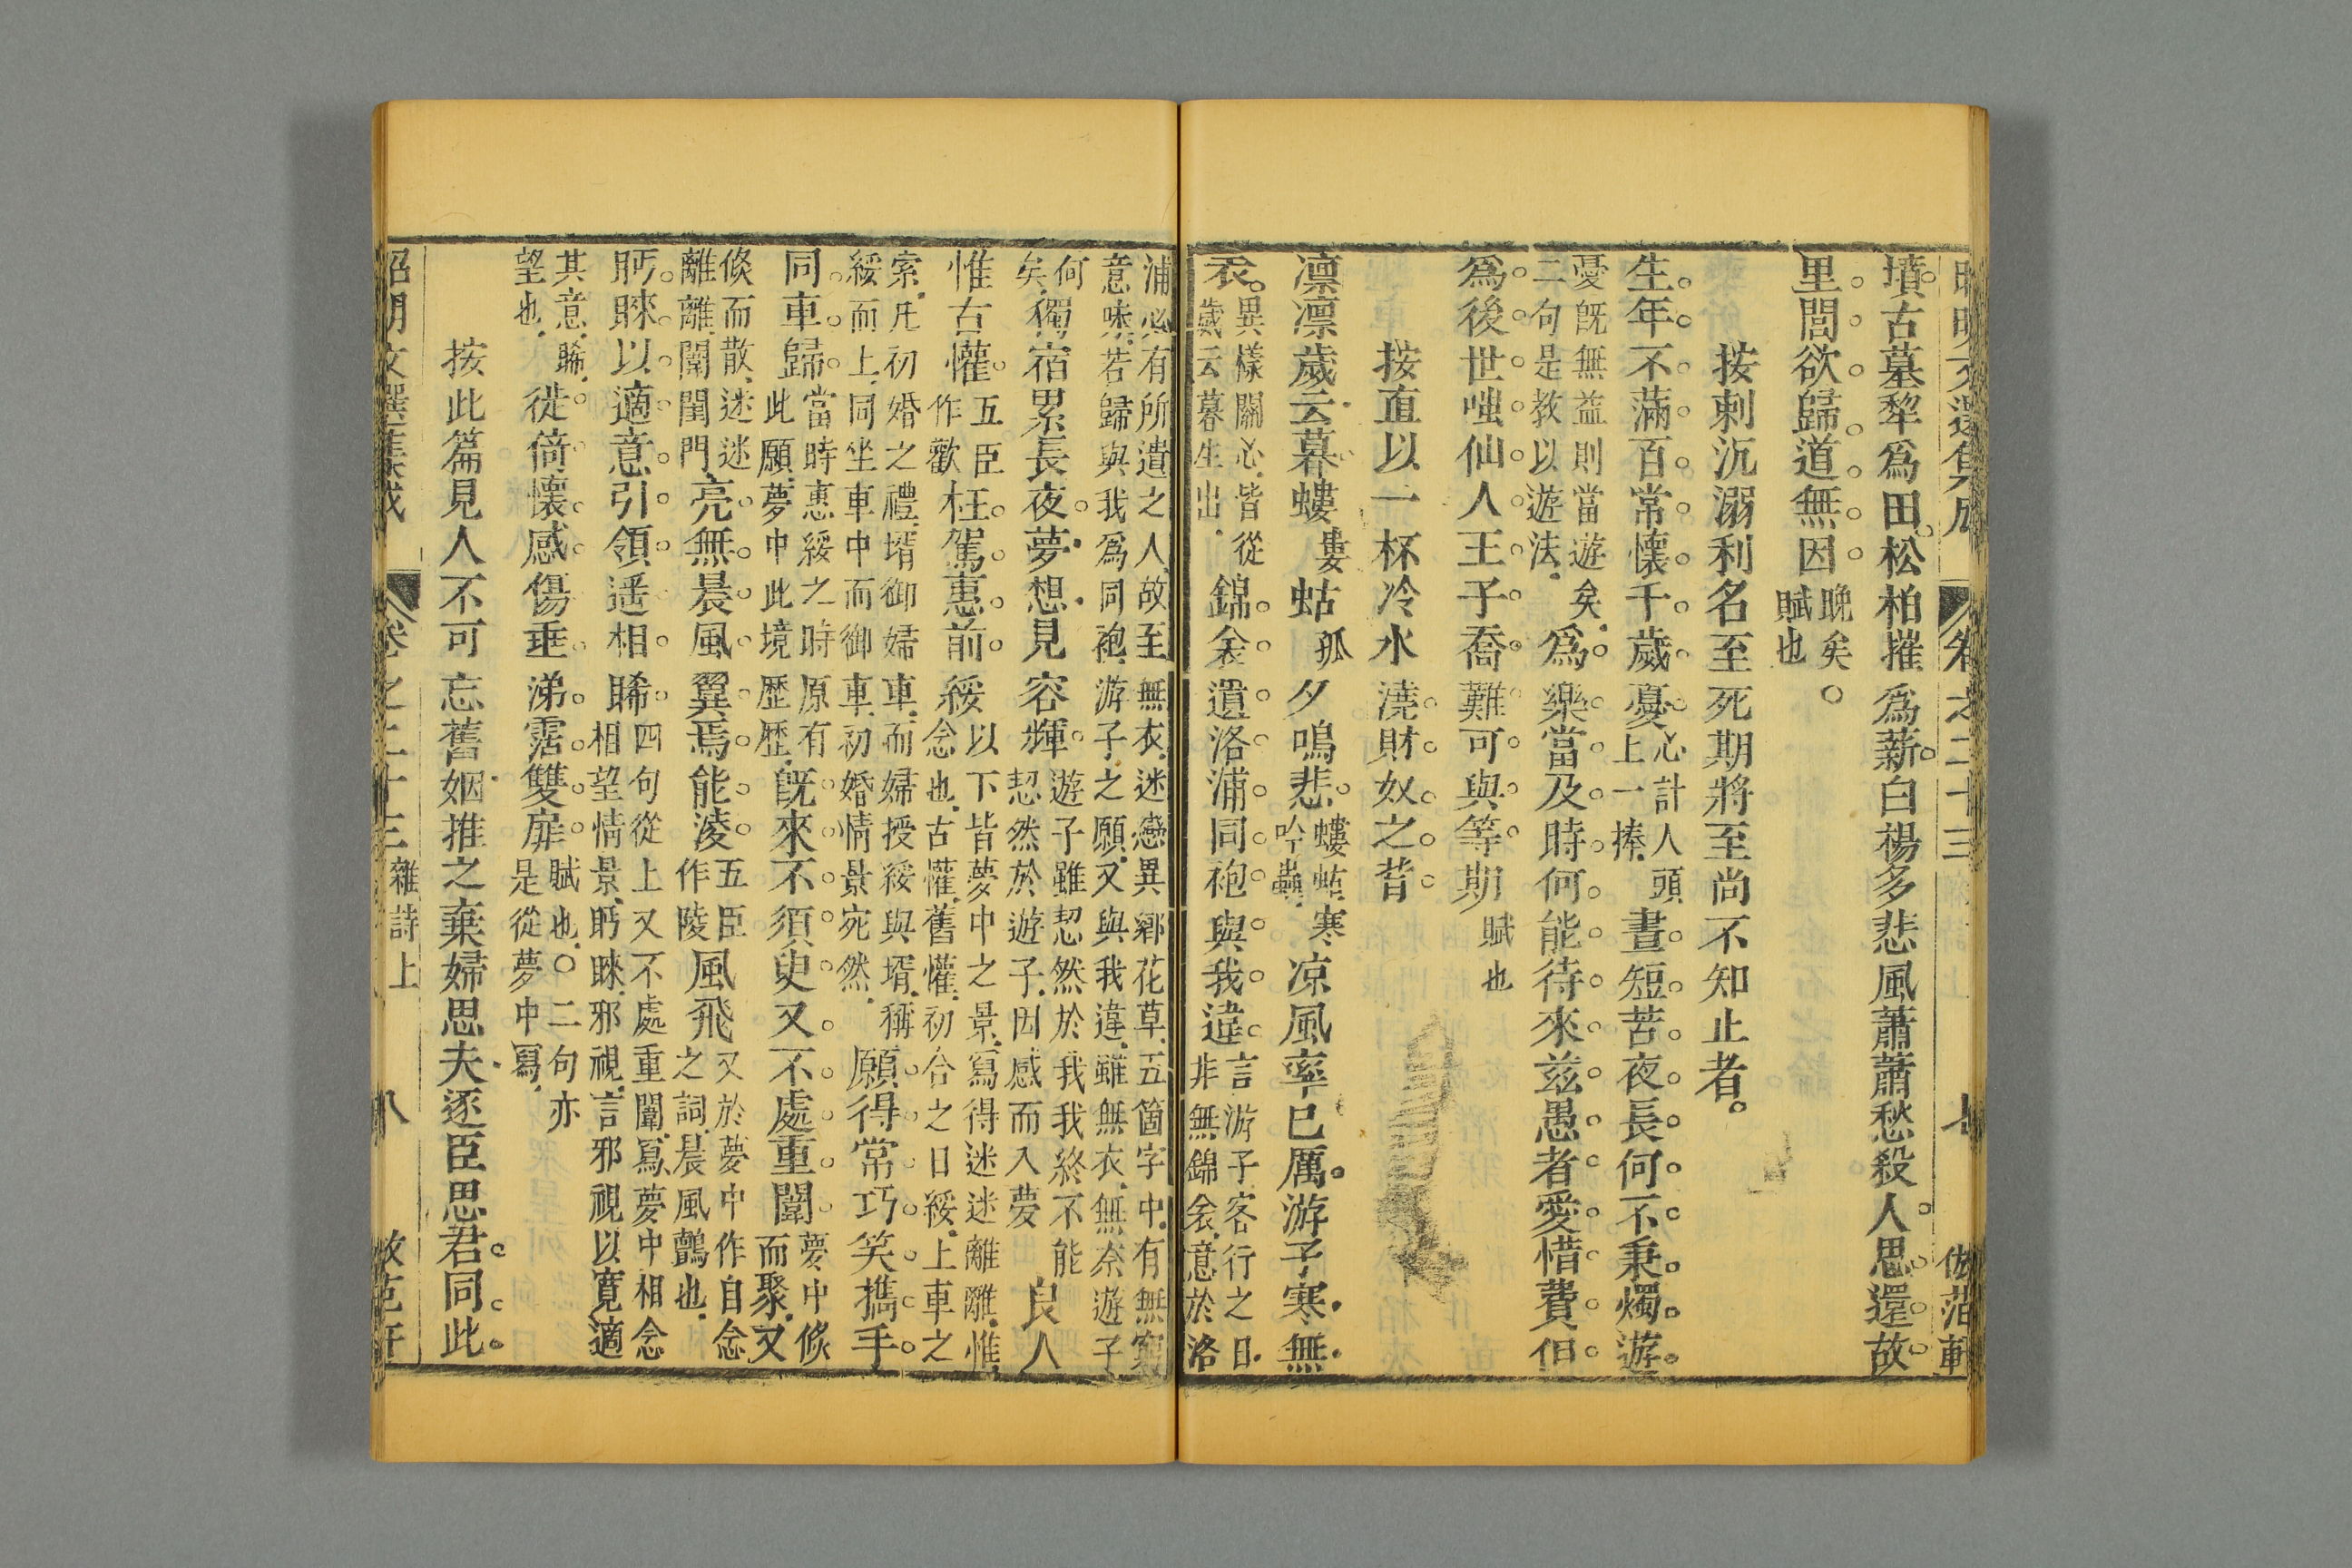 昭明文選集成 卷之二十三 七 倣范軒
墳古墓犂爲田松柏摧爲薪白楊多悲風蕭蕭愁殺人思還故
里閭欲歸道無因晚矣○賦也
按刺沉溺利名至死期將至尚不知止者。
生年不滿百常懷千歲憂心計人頭上一捧晝短苦夜長何不秉燭遊
憂旣無益則當遊矣二句是教以遊法爲樂當及時何能待來兹愚者愛惜費但
爲後世嗤仙人王子喬難可與等期賦也
按直以一杯冷水澆財奴之背
凛凛歲云暮螻婁蛄孤夕鳴悲螻蛄寒吟蟲凉風率已厲游子寒無
衣異樣關心皆從歲云暮生出錦衾遺洛浦同袍與我違言游子客行之日非無錦衾意於洛
浦必有所遺之人故至無衣迷戀異鄉花草五箇字中有無窮
意味若歸與我爲同袍游子之願又與我違雖無衣無奈遊子
何矣獨宿累長夜夢想見容輝遊子雖恝然於我我終不能恝然於遊子因感而入夢良人
惟古懽五臣作歡枉駕惠前綏以下皆夢中之景寫得迷迷離離惟念也古懽舊懽初合之日綏上車之
索凡初婚之禮壻御婦車而婦授綏與壻稱綏而上同坐車中而御車初婚情景宛然願得常巧笑擕手
同車歸當時惠綏之時原有此願夢中此境歷歷旣來不須臾又不處重闈夢中倐而聚又
倐而散迷迷離離闈閨門亮無晨風翼焉能淩五臣作陵風飛又於夢中作自念之詞晨風鸇也
眄睞以適意引領遥相睎四句從上又不處重闈寫夢中相念相望情景眄睞邪視言邪視以寛適
其意睎望也徙倚懷感傷垂涕霑雙扉賦也○二句亦是從夢中寫
按此篇見人不可忘舊姻推之棄婦思夫逐臣思君同此
昭明文選集成 卷之二十三 雜詩上 八 倣范軒